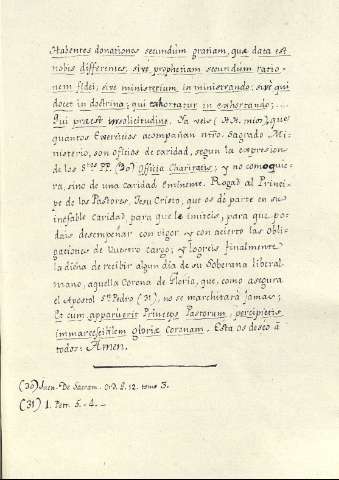 Habentes donationes secundùm gratiam, quæ data est
nobis differentes, sive prophetiam secundùm ratio-
nem fidei, sive ministerium in ministrando; sive qui
docet in doctrina; qui exhortatur in exhortando; ...
Qui præest in solicitudine. Ya veis (HH. mios), que
quantos Exercicios acompañan nrõ. Sagrado Mi-
nisterio, son oficios de caridad, segun la expresion
de los S.tos PP. (30) Officia Charitatis; y no comoquie-
ra, sino de una Caridad eminente. Rogad al Princi-
pe de los Pastores, Jesu Cristo, que os dè parte en su
inefable Caridad, para que le imiteis, para que po-
dais desempeñar con vigor y con acierto las obli-
gaciones de vuestro cargo; y logreis finalmente
la dicha de recibir algun dia de su Soberana liberal
mano, aquella Corona de Gloria, que, como asegura
el Apostol S.n Pedro (31), no se marchitarà jamas;
Et cum apparuerit Princeps Pastorum, percipietis
immarcescibilem gloriæ Coronam. Esta os deseo à
todos: Amen.
(30) Juen. De Sacram. Ord. S. 12. tomo 3.
(31) 1. Petr. 5. 4. _